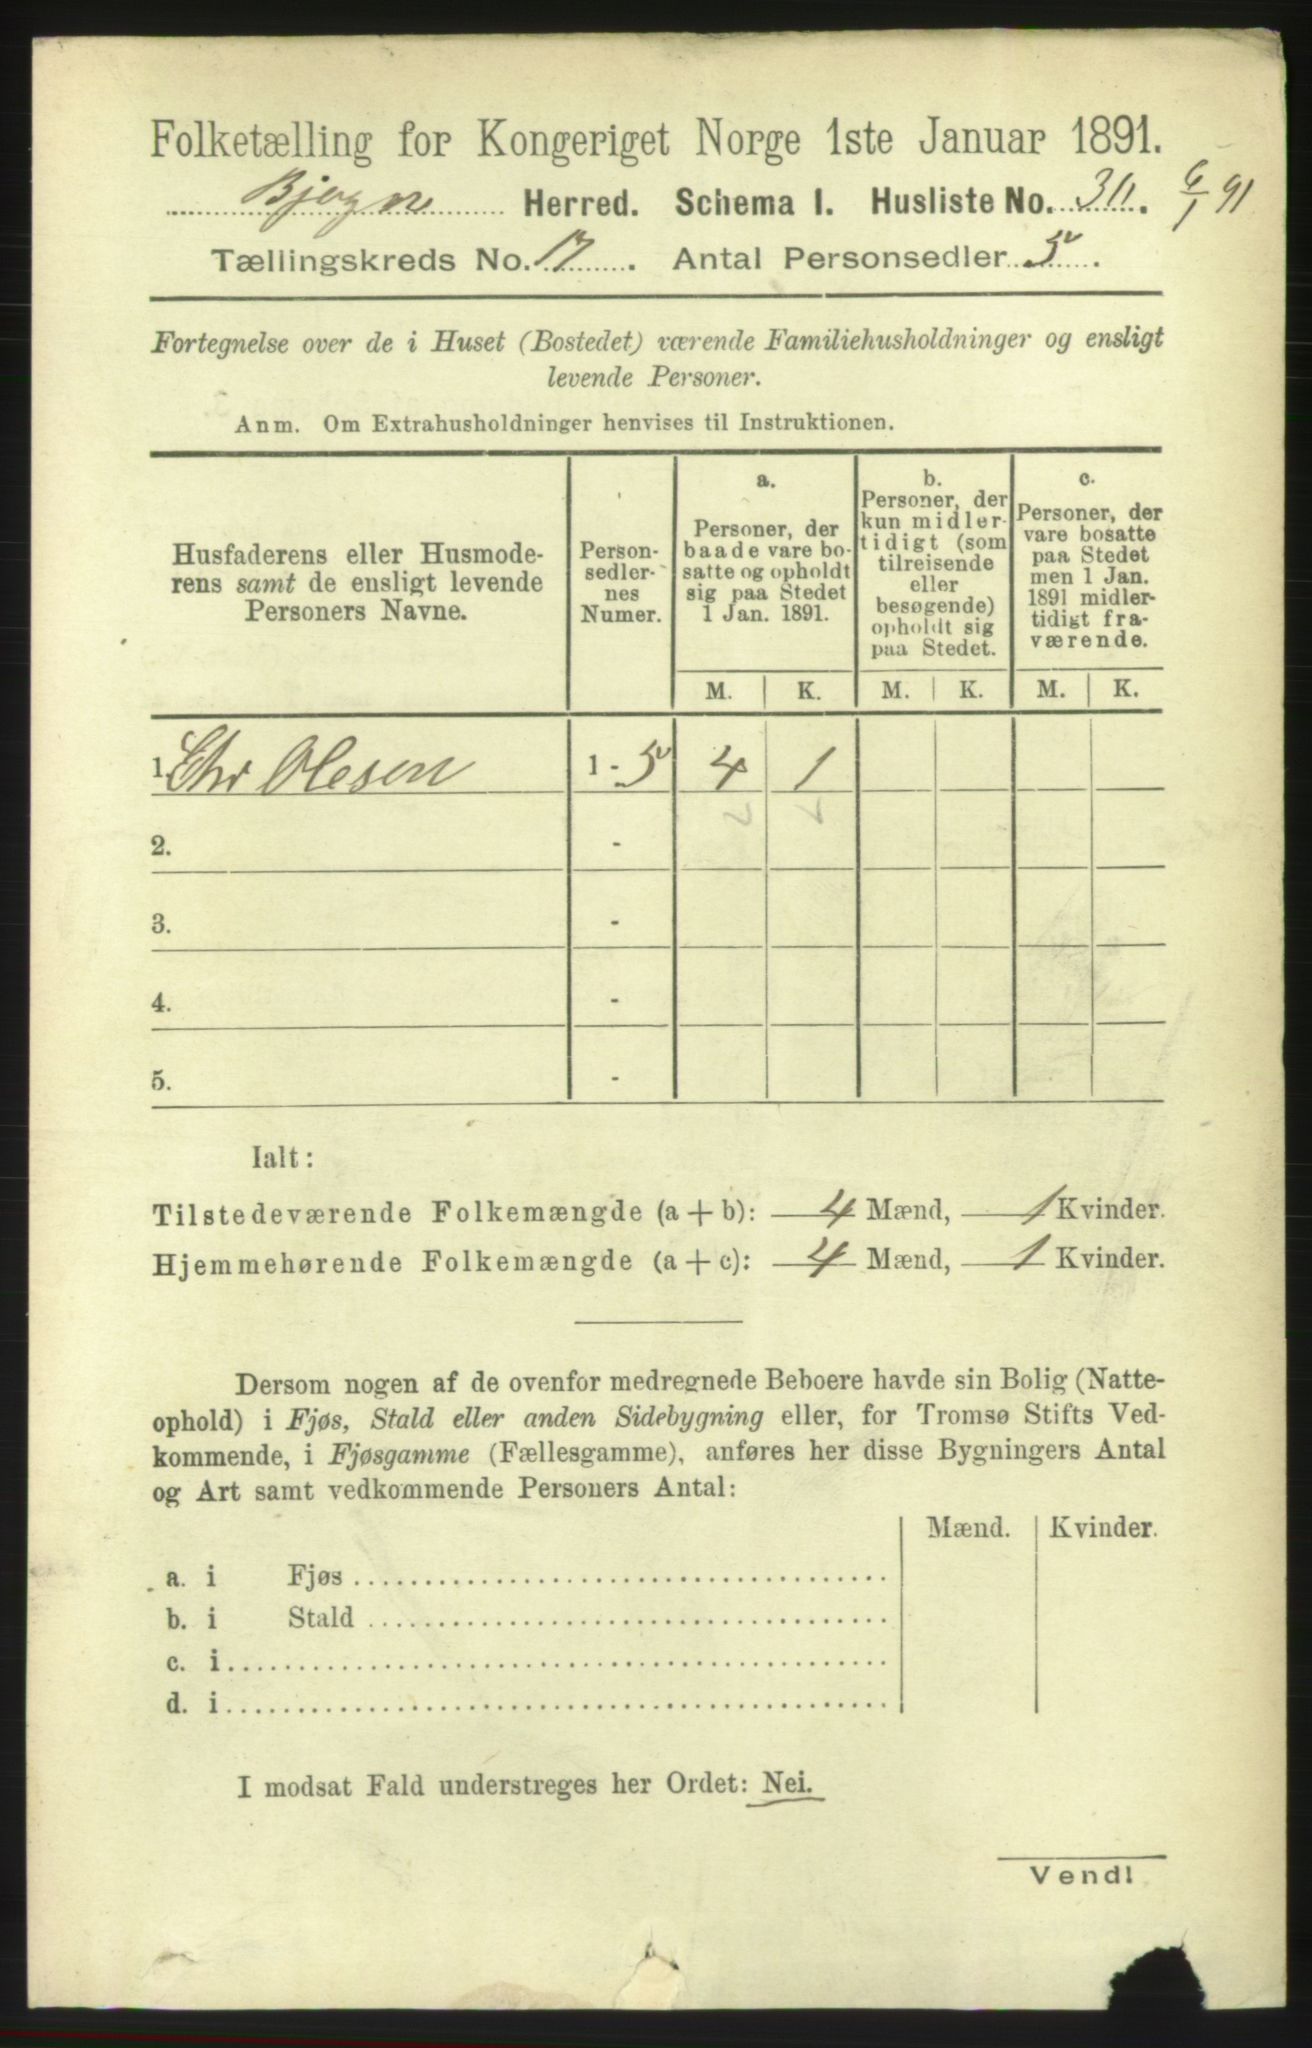 Folketælling for Kongeriget Norge 1ste Januar 1891.
Herred. Schema I. Husliste No. 6/1 91
Tællingskreds No. 17. Antal Personsedler 5.
Fortegnelse over de i Huset (Bostedet) værende Familiehusholdninger og ensligt
levende Personer.
Anm. Om Extrahusholdninger henvises til Instruktionen.
Husfaderens eller Husmode-
rens samt de ensligt levende
Personers Navne.
Person-
sedler-
nes
Numer.
a.
Personer, der
baade vare bo-
satte og opholdt
sig paa Stedet
1 Jan. 1891.
b.
Personer, der
kun midler-
tidigt (som
tilreisende
eller
besøgende)
opholdt sig
paa Stedet.
c.
Personer, der
vare bosatte
paa Stedet
men 1 Jan.
1891 midler-
tidigt fra-
værende.
M. K. M. K. M. K.
1. Chr Olesen 1 - 5 4 1
2. -
3. -
4. -
5. -
Ialt:
Tilstedeværende Folkemængde (a + b): 4 Mænd, 1 Kvinder.
Hjemmehørende Folkemængde (a + c): 4 Mænd, 1 Kvinder.
Dersom nogen af de ovenfor medregnede Beboere havde sin Bolig (Natte-
ophold) i Fjøs, Stald eller anden Sidebygning eller, for Tromsø Stifts Ved-
kommende, i Fjøsgamme (Fællesgamme), anføres her disse Bygningers Antal
og Art samt vedkommende Personers Antal:
Mænd. Kvinder.
a. i Fjøs
b. i Stald
c. i
d. i
I modsat Fald understreges her Ordet: Nei.
Vend!